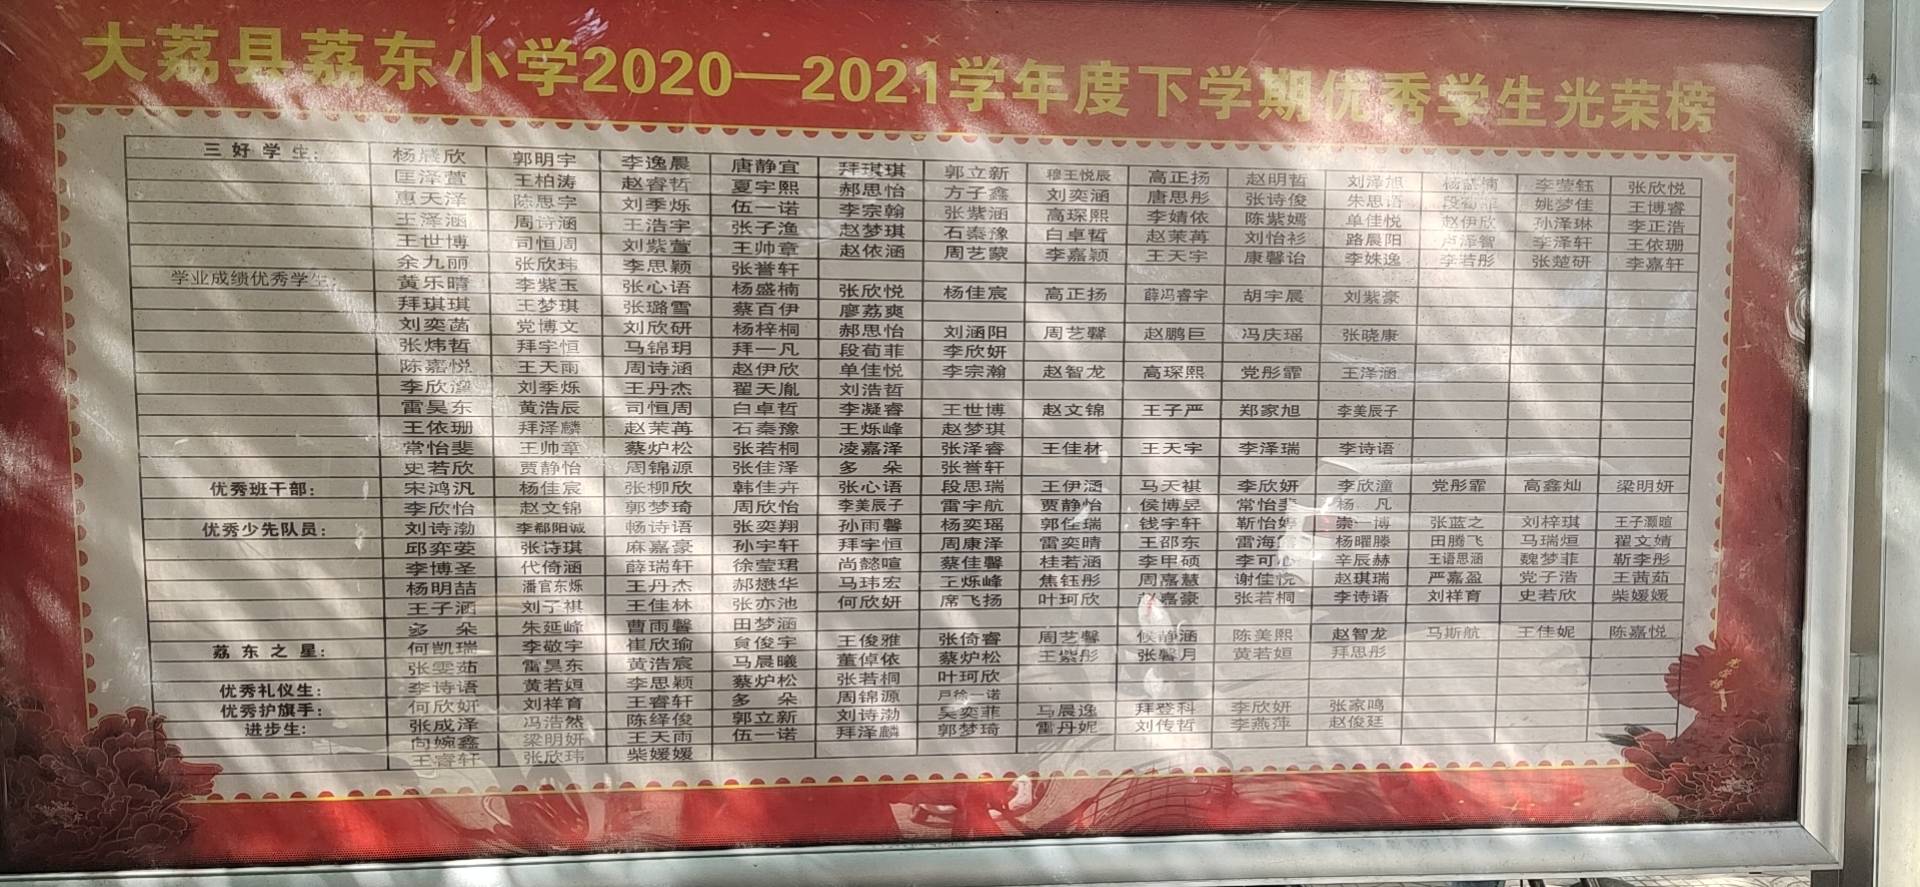 大荔县荔东小学2020—2021学年度下学期优秀学生光荣榜
三好学生： 杨晨欣 郭明宇 李逸晨 唐静宜 拜琪琪 郭立新 穆王悦辰 高正扬 赵明哲 刘泽旭 李莹钰 张欣悦
匡泽萱 王柏涛 赵睿哲 夏宇熙 郝思怡 方子鑫 刘奕涵 唐思彤 张诗俊 朱思语 段荀菲 姚梦佳 王博睿
惠天泽 陈思字 刘季烁 伍一诺 李宗翰 张紫涵 高琛熙 李婧依 陈紫嫣 单佳悦 赵伊欣 孙泽琳 李正浩
王泽涵 周诗涵 王浩宇 张子渔 赵梦琪 石秦豫 白卓哲 赵茉苒 刘怡衫 路晨阳 李泽轩 王依珊
王世博 司恒周 刘紫萱 王帅章 赵依涵 周艺蒙 李嘉颖 王天宇 康馨诒 李姝逸 李若彤 张楚研 李嘉轩
余九丽 张欣玮 李思颖 张誉轩
学业成绩优秀学生： 黄乐晴 李紫玉 张心语 杨盛楠 张欣悦 杨佳宸 高正扬 薛冯睿宇 胡宇晨 刘紫豪
拜琪琪 王梦琪 张璐雪 蔡百伊 廖荔爽
刘奕菡 党博文 刘欣研 杨梓桐 郝思怡 刘涵阳 周艺馨 赵鹏巨 冯庆瑶 张晓康
张炜哲 拜宇恒 马锦玥 拜一凡 段荀菲 李欣妍
陈嘉悦 王天雨 周诗涵 赵伊欣 单佳悦 李宗瀚 赵智龙 高琛熙 党彤霏 王泽涵
李欣潼 刘季烁 王丹杰 翟天胤 刘浩哲
雷昊东 黄浩辰 司恒周 白卓哲 李凝睿 王世博 赵文锦 王子严 郑家旭 李美辰子
王依珊 拜泽麟 赵茉苒 石秦豫 王烁峰 赵梦琪
常怡斐 王帅章 蔡炉松 张若桐 凌嘉泽 张泽睿 王佳林 王天宇 李泽瑞 李诗语
史若欣 贾静怡 周锦源 张佳泽 多 朵 张誉轩
优秀班干部： 宋鸿汎 杨佳宸 张柳欣 韩佳卉 张心语 段思瑞 王伊涵 马天祺 李欣妍 李欣潼 党彤霏 高鑫灿 梁明妍
李欣怡 赵文锦 郭梦琦 周欣怡 李美辰子 雷宇航 贾静怡 侯博昱 常怡斐 杨 凡
优秀少先队员： 刘诗渤 李郗阳诚 畅诗语 张奕翔 孙雨馨 杨奕瑶 郭佳瑞 钱宇轩 靳怡婷 崇一博 张蓝之 刘梓琪 王子灏暄
邱弈菱 张诗琪 麻嘉豪 孙宇轩 拜宇恒 周康泽 雷奕晴 王邵东 杨曜滕 田腾飞 马瑞烜 翟文婧
李博圣 代倚涵 薛瑞轩 徐莹珺 尚懿暄 蔡佳馨 桂若涵 李甲硕 李可心 辛辰赫 王语思涵 魏梦菲 靳李彤
杨明喆 潘官东烁 王丹杰 郝懋华 马玮宏 王烁峰 焦钰彤 周嘉慧 谢佳悦 赵琪瑞 严嘉盈 党子浩 王茜茹
王子洒 刘子祺 王佳林 张亦池 何欣妍 席飞扬 叶珂欣 赵嘉豪 张若桐 李诗语 刘祥育 史若欣 柴媛媛
多 朵 朱延峰 曹雨馨 田梦涵
荔东之星： 何凯瑞 李敬宇 崔欣瑜 負俊宇 王俊雅 张倚睿 周艺馨 候静涵 陈美熙 赵智龙 马斯航 王佳妮 陈嘉悦
张雯茹 雷昊东 黄浩宸 马晨曦 董倬依 蔡炉松 王紫彤 张馨月 黄若姮 拜思彤
优秀礼仪生： 李诗语 黄若姮 李思颖 蔡炉松 张若桐 叶珂欣
优秀护旗手： 何欣妍 刘祥育 王睿轩 多 朵 周锦源 卢徐一诺
进步生： 张成泽 冯浩然 陈绎俊 郭立新 刘诗渤 吴奕菲 马晨逸 拜登科 李欣妍 张家鸣
向婉鑫 梁明妍 王天雨 伍一诺 拜泽麟 郭梦琦 雷丹妮 刘传哲 李燕萍 赵俊廷
王睿轩 张欣玮 柴媛媛